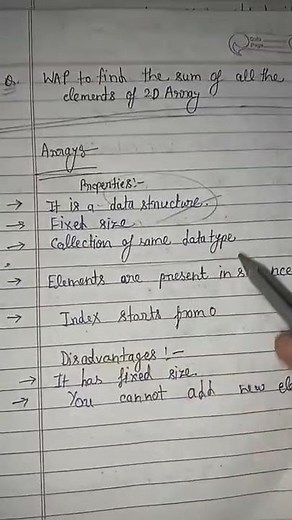 Date
Page
Q. WAP to find the sum of all the
elements of 2D Array
Arrays
Properties:-
→ It is a data structure.
→ Fixed size
→ Collection of same datatype
→ Elements are present in
→ Index starts from 0
Disadvantages :-
→ It has fixed size.
→ You cannot add new